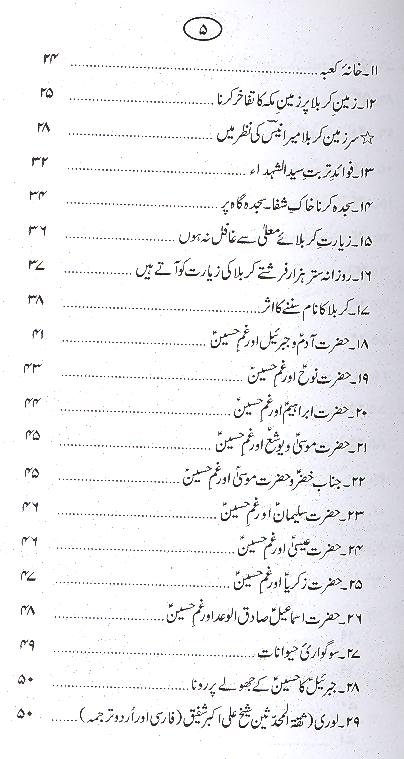 ۵
۱۱۔ خانۂ کعبہ ........ ۲۴
۱۲۔ زمینِ کربلا پر زمینِ مکہ کا تفاخر کرنا ........ ۲۵
☆ سرزمینِ کربلا میر انیسؔ کی نظر میں ........ ۲۸
۱۳۔ فوائدِ تربتِ سید الشہداء ........ ۳۲
۱۴۔ سجدہ کرنا خاکِ شفا۔ سجدہ گاہ پر ........ ۳۴
۱۵۔ زیارتِ کربلائے معلیٰ سے غافل نہ ہوں ........ ۳۶
۱۶۔ روزانہ ستر ہزار فرشتے کربلا کی زیارت کو آتے ہیں ........ ۳۷
۱۷۔ کربلا کا نام سننے کا اثر ........ ۳۸
۱۸۔ حضرت آدمؑ و جبرئیل اور غمِ حسینؑ ........ ۴۱
۱۹۔ حضرت نوحؑ اور غمِ حسینؑ ........ ۴۳
۲۰۔ حضرت ابراہیمؑ اور غمِ حسینؑ ........ ۴۴
۲۱۔ حضرت موسیٰؑ و یوشعؑ اور غمِ حسینؑ ........ ۴۵
۲۲۔ جناب خضرؑ و حضرت موسیٰؑ اور غمِ حسینؑ ........ ۴۵
۲۳۔ حضرت سلیمانؑ اور غمِ حسینؑ ........ ۴۶
۲۴۔ حضرت عیسیٰؑ اور غمِ حسینؑ ........ ۴۶
۲۵۔ حضرت زکریاؑ اور غمِ حسینؑ ........ ۴۷
۲۶۔ حضرت اسماعیلؑ صادق الوعد اور غمِ حسینؑ ........ ۴۸
۲۷۔ سوگواریٔ حیوانات ........ ۴۹
۲۸۔ جبرئیلؑ کا حسینؑ کے جھولے پر رونا ........ ۵۰
۲۹۔ لوری (ثقۃ المحدثین شیخ علی اکبر شفیق (فارسی اور اُردو ترجمہ) ........ ۵۰